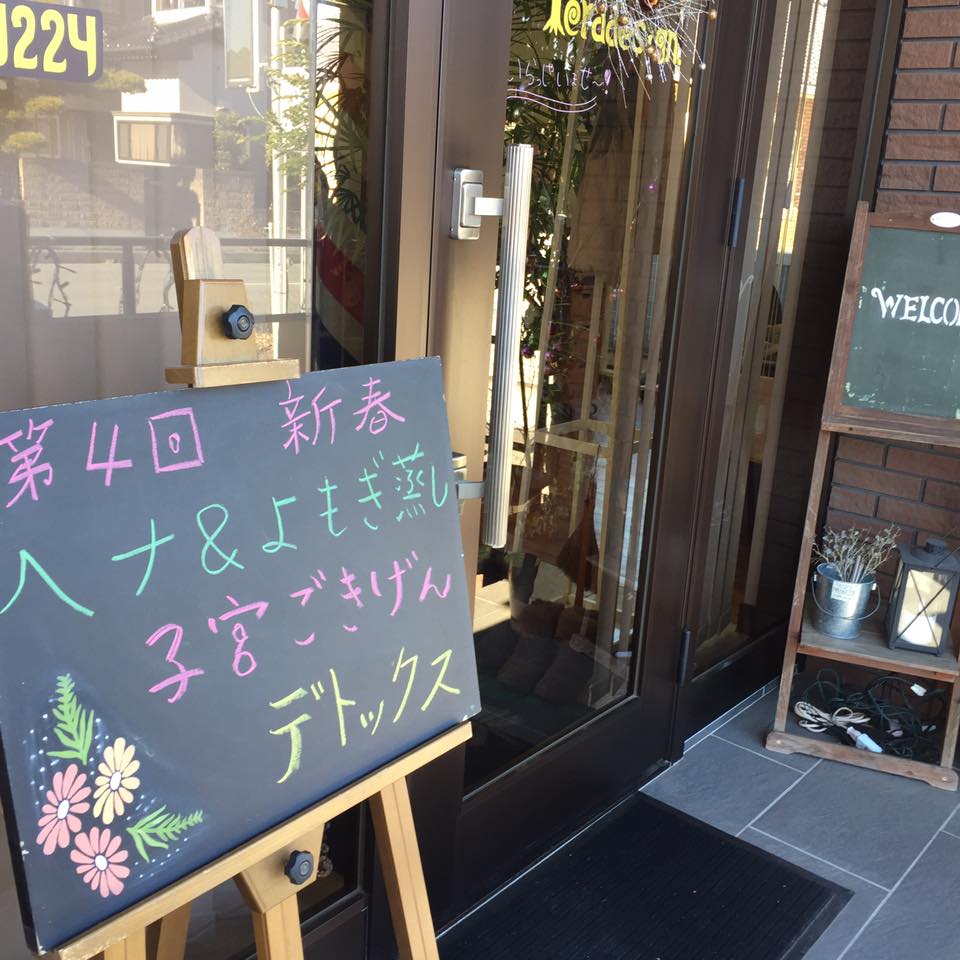 0224
らっしいませ〜!
第4回 新春
ヘナ&よもぎ蒸し
子宮ごきげん
デトックス
WELCO